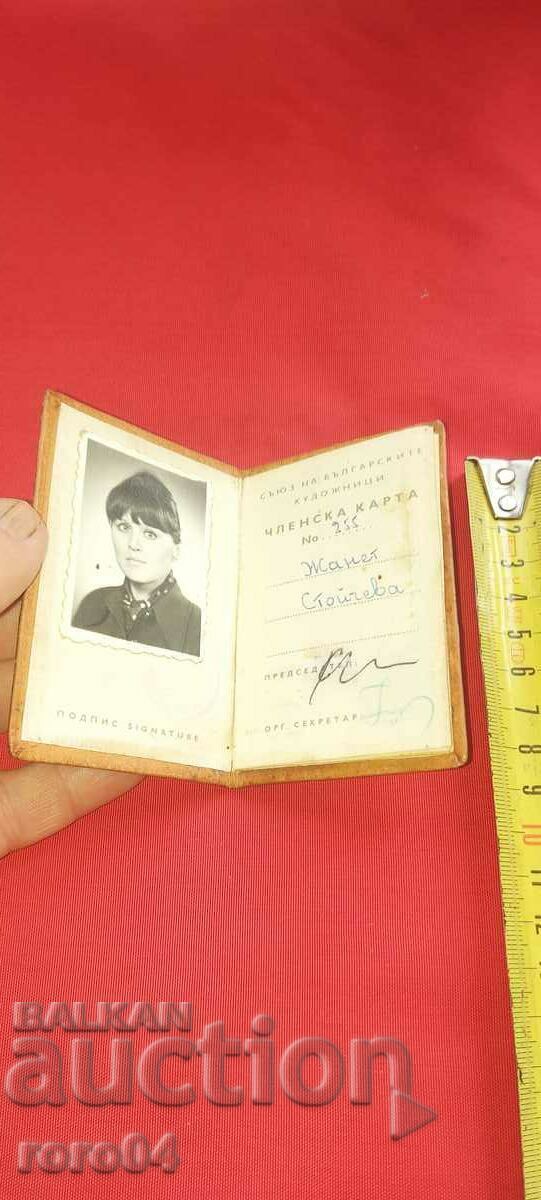 СЪЮЗ НА БЪЛГАРСКИТЕ
ХУДОЖНИЦИ
ЧЛЕНСКА КАРТА
No. 255
Жанет
Стойчева
ПРЕДСЕДАТЕЛ:
ОРГ. СЕКРЕТАР
ПОДПИС SIGNATURE
2
3
4
5
6
7
8
9
10
11
12
BALKAN
auction
roro04